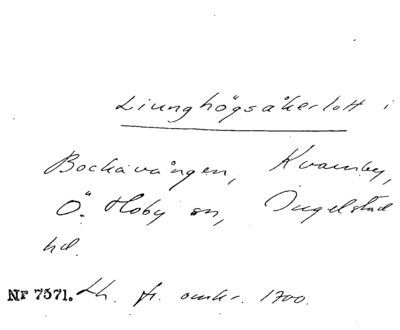 Liunghögsåkerlott i
Bockavången, Kvarnby,
Ö. Hoby sn, Ingelstad
hd.
Nr 7571. Lh. fr. omkr. 1700.